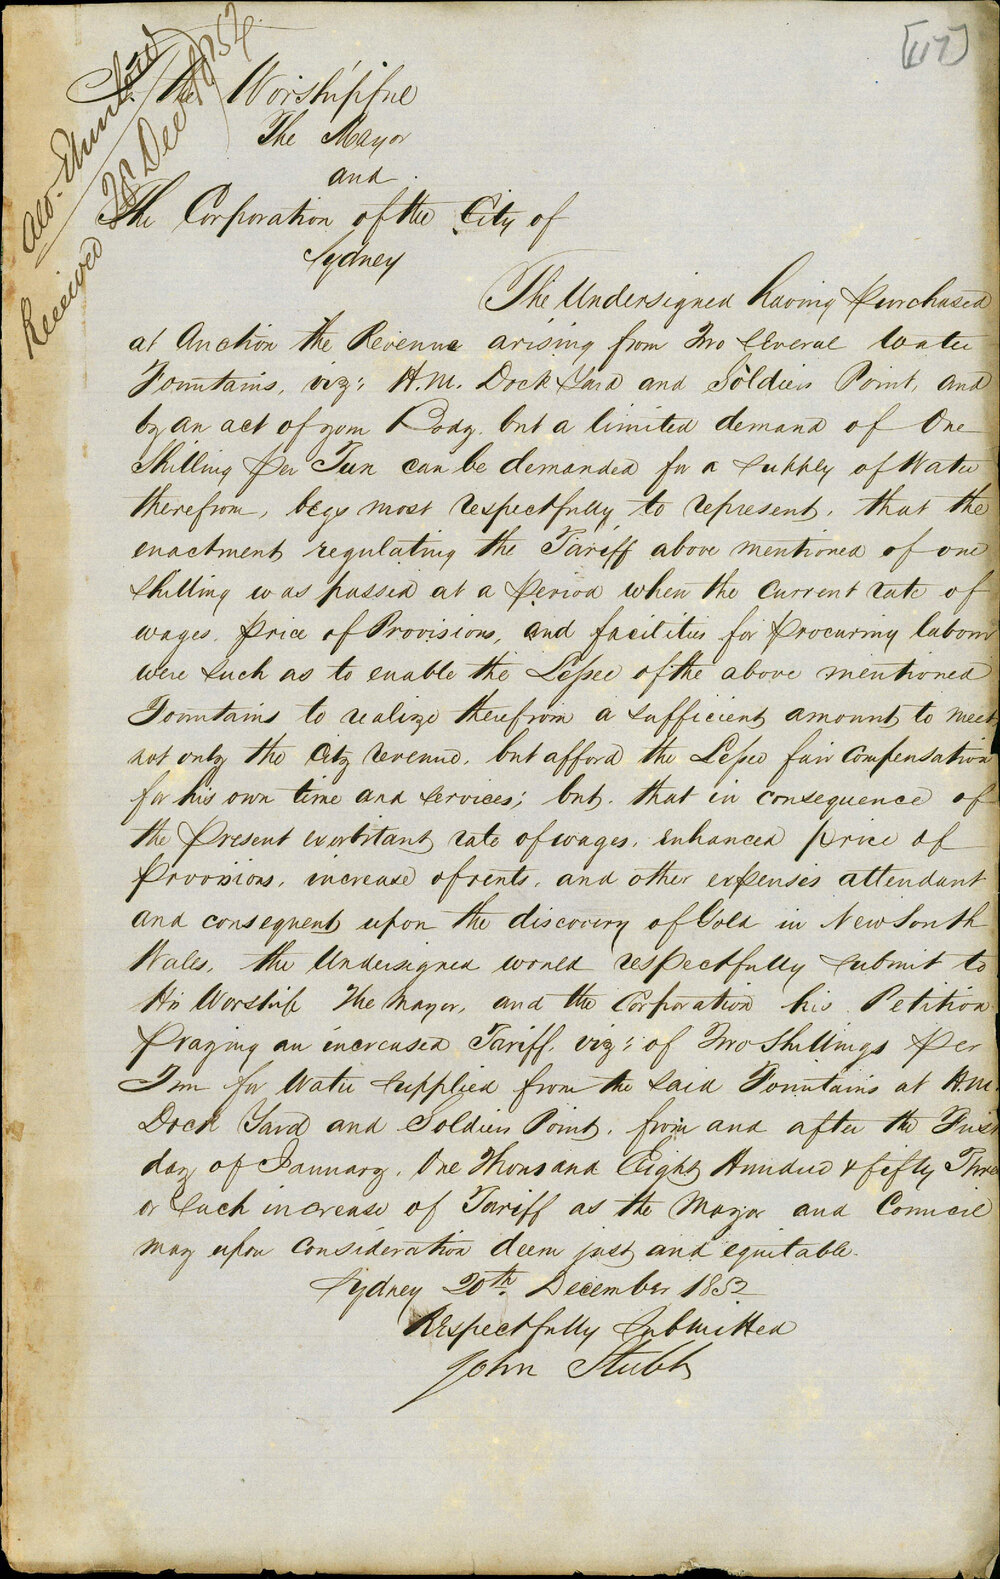 [117]
Ald. Thurlow
Received 28 Dec 1852
To The Worshipful
The Mayor
and
The Corporation of the City of
Sydney
The Undersigned having purchased
at Auction the Revenue arising from Two Several Water
Fountains, viz: H.M. Dock Yard and Soldiers Point, and
by an act of your Body. but a limited demand of One
Shilling per Tun can be demanded for a supply of Water
therefrom, begs most respectfully to represent, that the
enactment regulating the Tariff above mentioned of one
shilling was passed at a period when the current rate of
wages. price of Provisions, and facilities for procuring labour
were such as to enable the Lessee of the above mentioned
Fountains to realize therefrom a sufficient amount to meet
not only the City revenue, but afford the Lessee fair compensation
for his own time and services; but. that in consequence of
the present exorbitant rate of wages, enhanced price of
provisions, increase of rents, and other expenses attendant
and consequent upon the discovery of Gold in New South
Wales, the Undersigned would respectfully submit to
His Worship The Mayor, and the Corporation his Petition
praying an increased Tariff, viz: of Two Shillings per
Tun for Water supplied from the said Fountains at H.M.
Dock Yard and Soldiers Point, from and after the First
day of January, One Thousand Eight Hundred & fifty Three
or such increase of Tariff as the Mayor and Council
may upon consideration deem just and equitable.
Sydney 20th. December 1852
Respectfully Submitted
John Stubbs